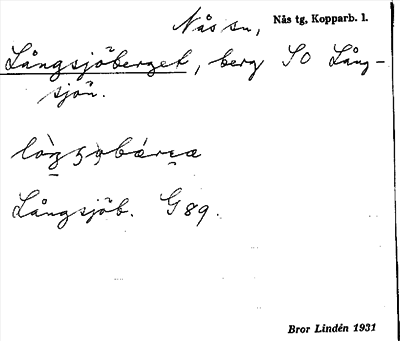 Nås sn, Nås tg, Kopparb. l.
Långsjöberget, berg SO Lång-
sjön.
Långsjöb. G 89.
Bror Lindén 1931